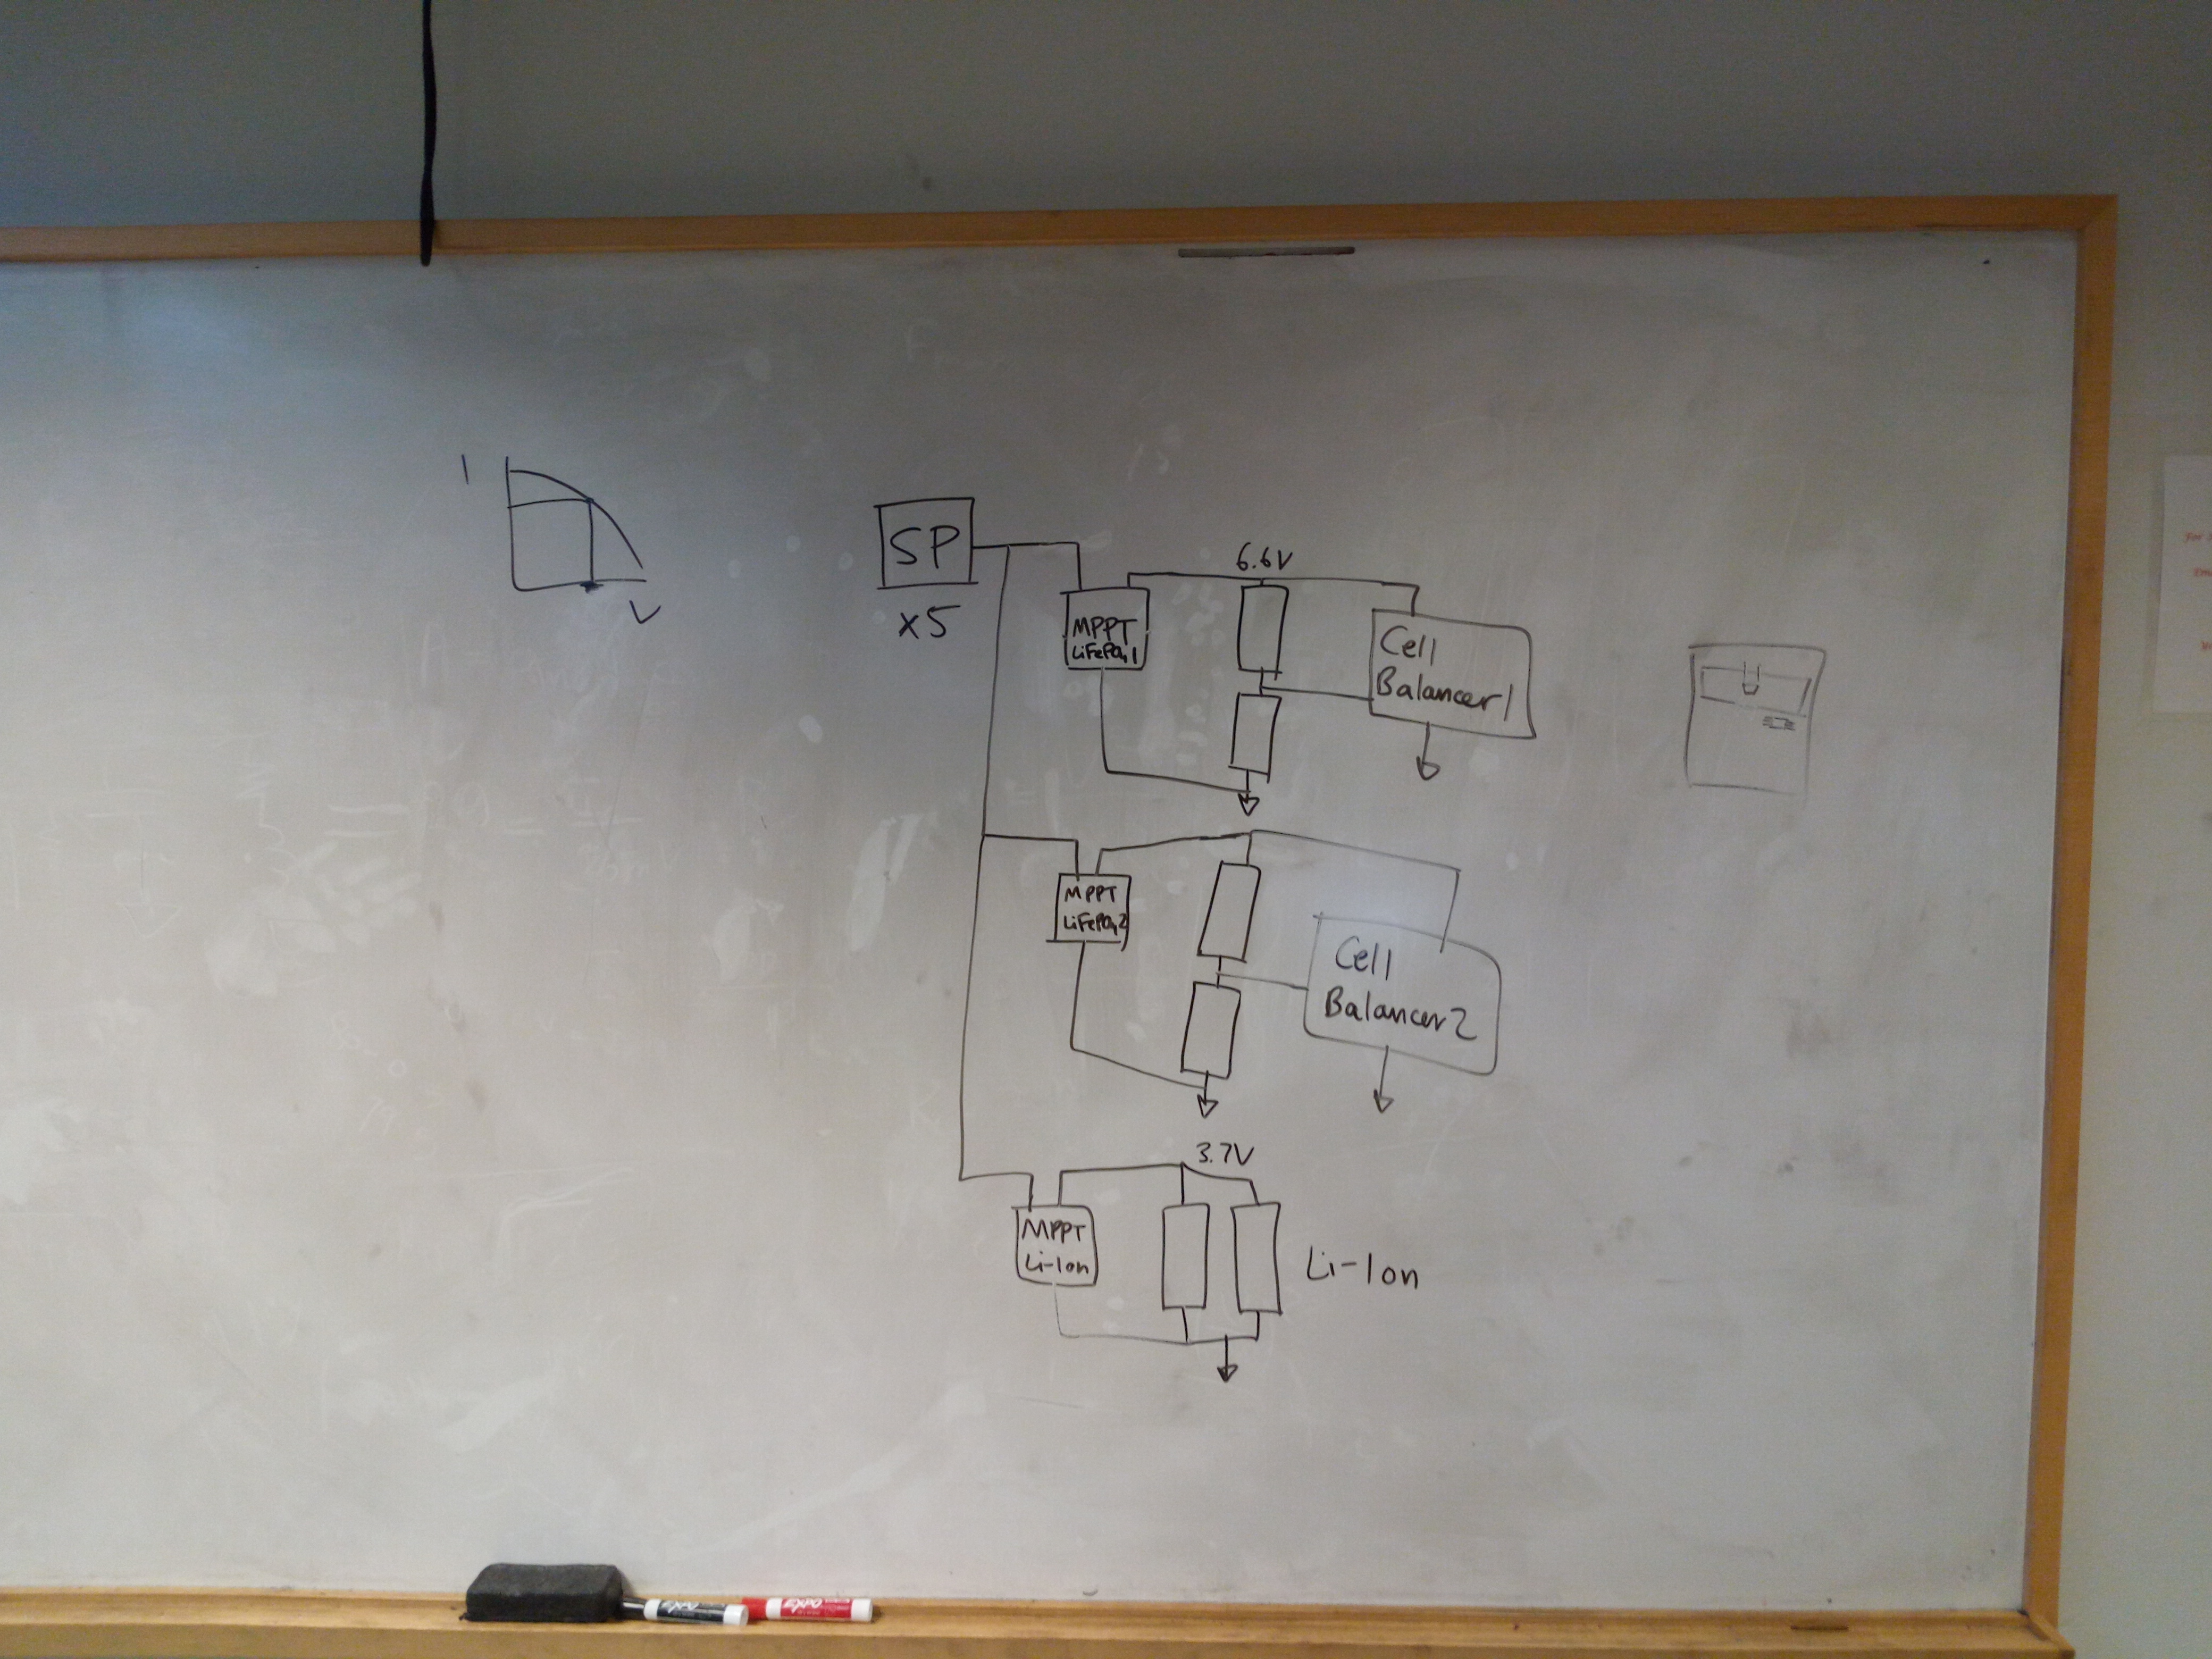 I
V
SP
x5
6.6V
MPPT
LiFePO41
Cell
Balancer1
MPPT
LiFePO42
Cell
Balancer2
3.7V
MPPT
Li-Ion
Li-Ion
EXPO
EXPO